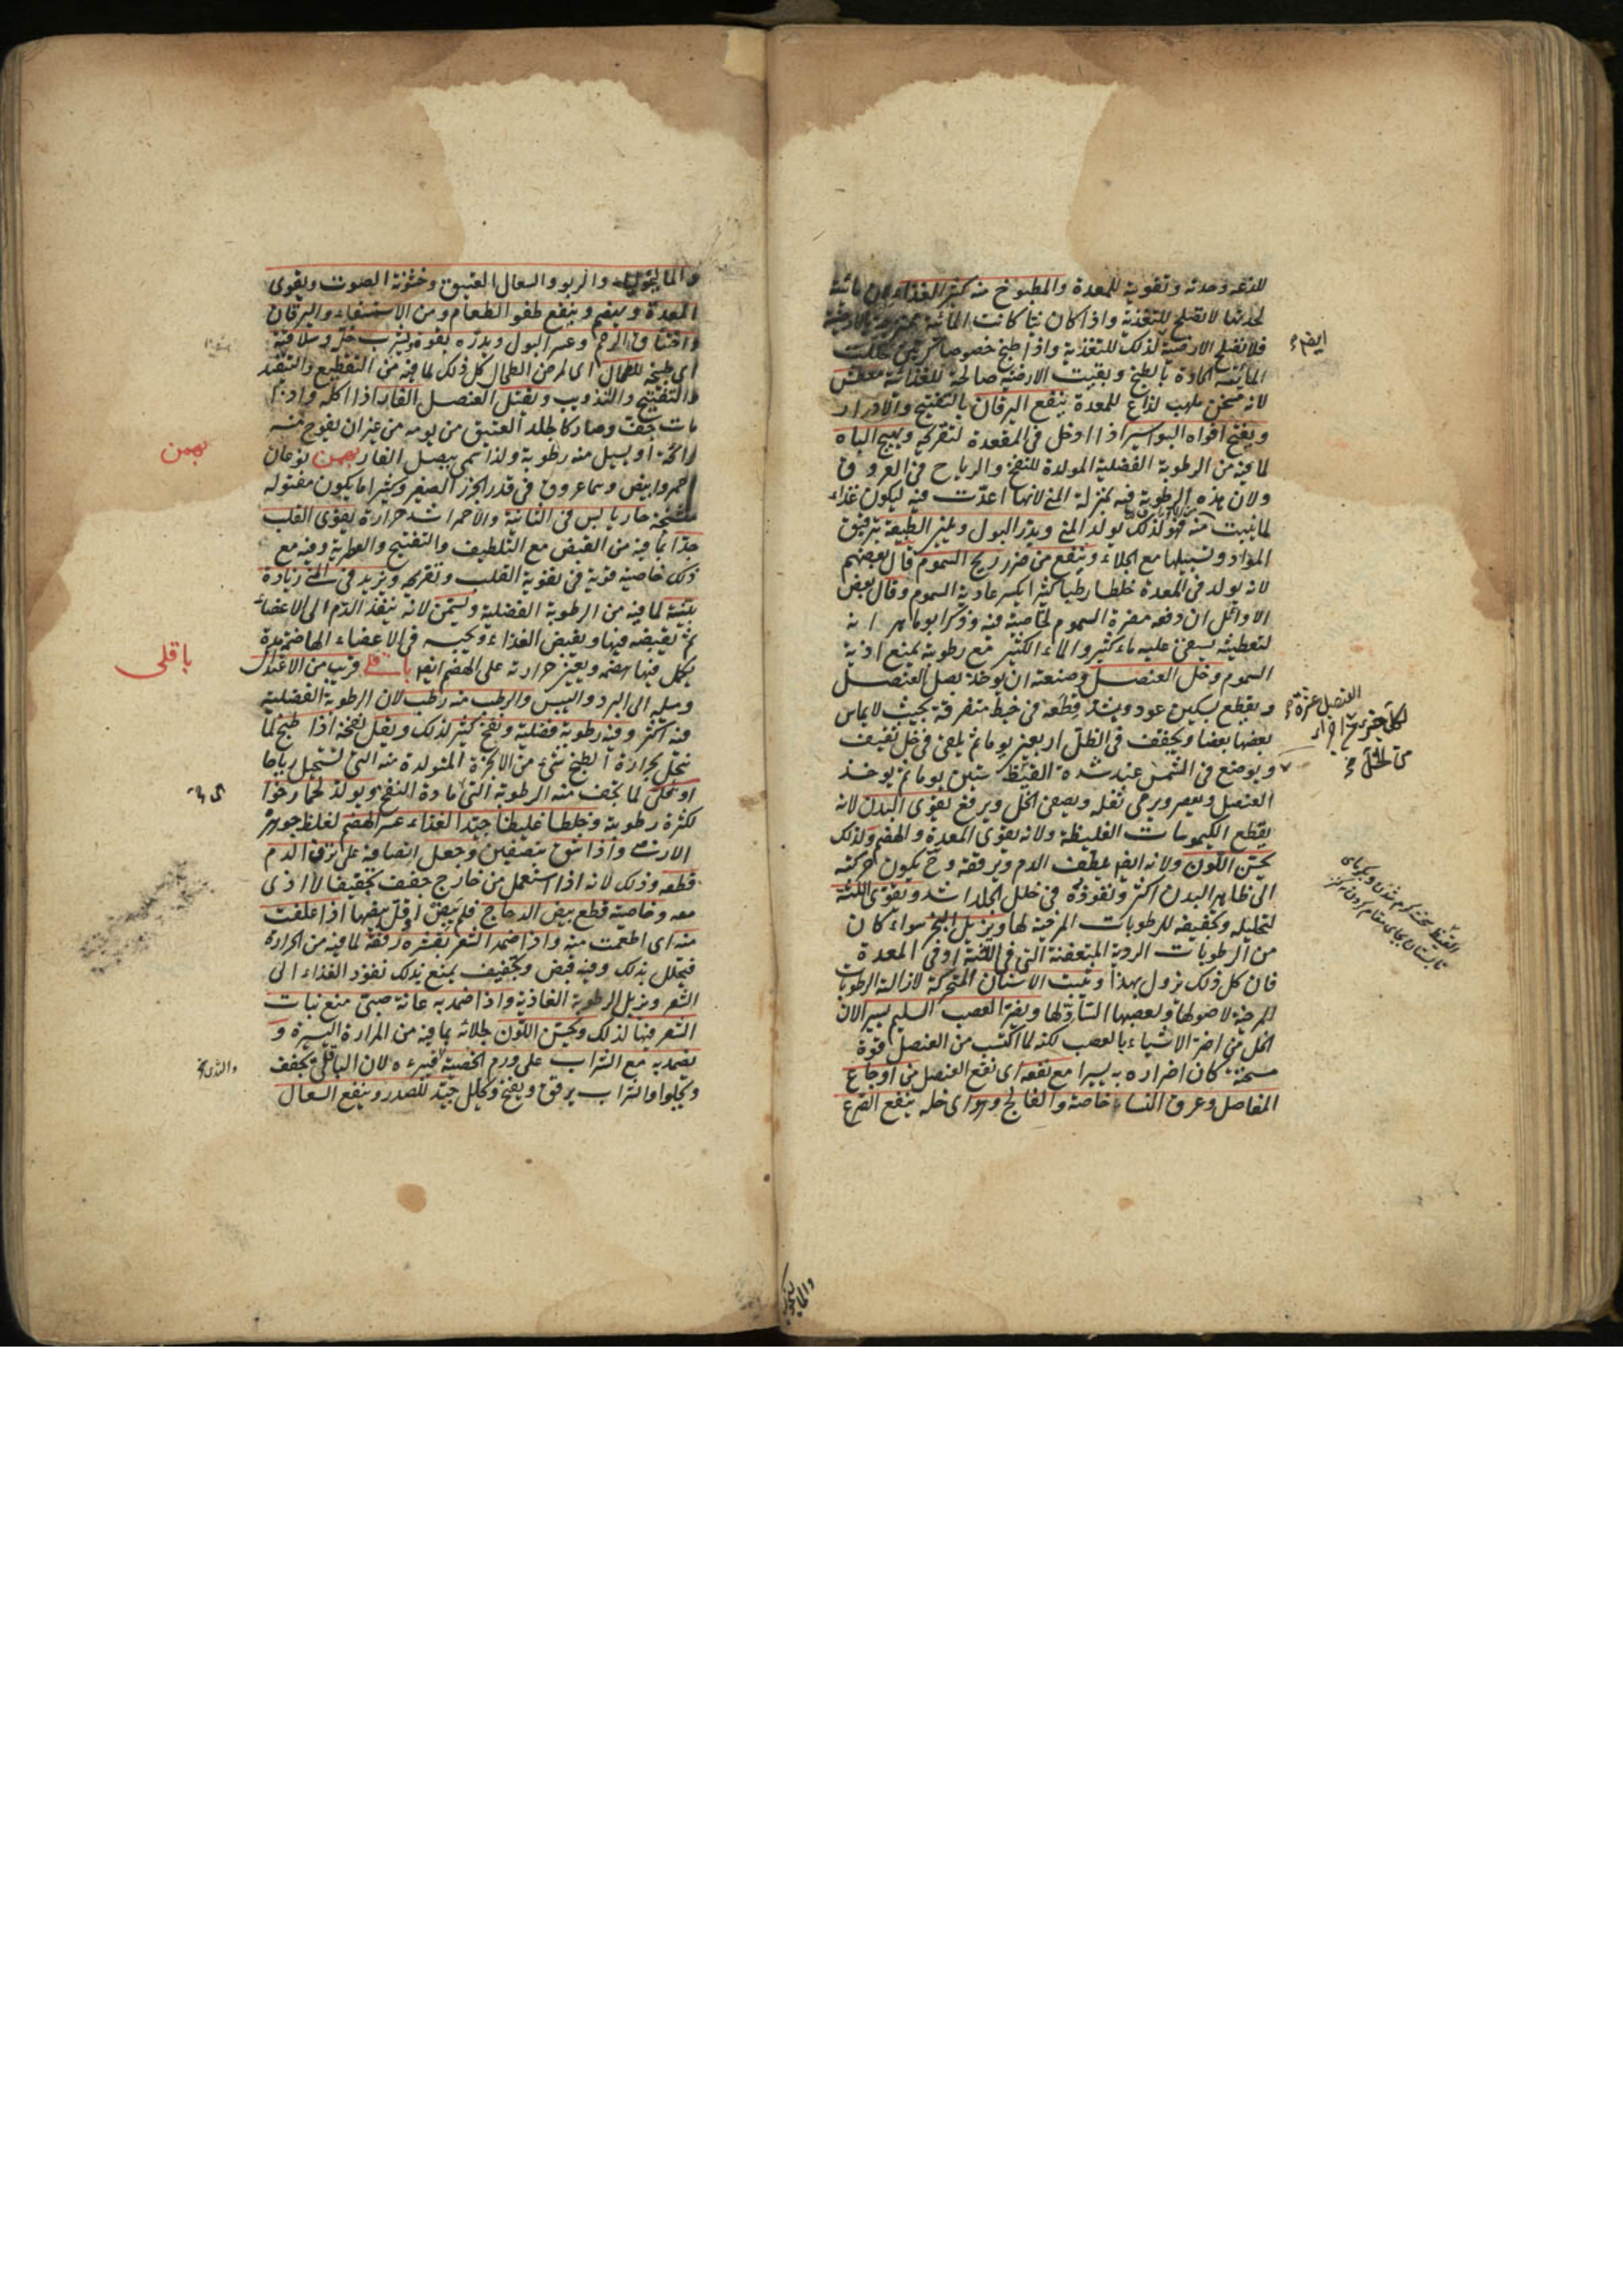 للذعه وحدته وتقوية للمعدة والمطبوخ منه كثير الغذاء لان مائيته
لحدتها لا تصلح للتغذية واذا كان نيا كانت المائية
فلا تصلح الارضية لذلك للتغذية واذا طبخ خصوصا مرتين تحللت
المائية الحادة بالطبخ وبقيت الارضية صالحة للغذائية معطش
لانه مسخن ملهب لذاع للمعدة ينفع اليرقان بالتفتيح والادرار
ويفتح افواه البواسير اذا ادخل فى المقعدة لتقريحه ويهيج الباه
لما فيه من الرطوبة الفضلية المولدة للنفخ والرياح فى العروق
ولان هذه الرطوبة فيه بمنزلة المنى لانها اعدت فيه ليكون غذاء
لما ينبت منه فهو لذلك يولد المنى ويدر البول ويلين الطبيعة بترقيق
المواد وتسييلها مع الجلاء وينفع من ضرر ريح السموم قال بعضهم
لانه يولد فى المعدة خلطا رطبا كثيرا يكسر عادية السموم وقال بعض
الاوائل ان دفعه مضرة السموم لخاصية فيه وذكر ابو ماهر انه
لتعطيشه يسقى عليه ماء كثير والماء الكثير مع رطوبته يمنع اذية
السموم وخل العنصل وصنعته ان يوخذ بصل العنصل
ويقطع بسكين عود ويشد قطعه فى خيط متفرقة بحيث لا يماس
بعضها بعضا ويجفف فى الظل اربعين يوما ثم يلقى فى خل ثقيف
ويوضع فى الشمس عند شدة القيظ ستين يوما ثم يوخذ
العنصل ويعصر ويرمى ثفله ويصفى الخل ويرفع يقوى البدن لانه
يقطع الكيموسات الغليظة ولانه يقوى المعدة والهضم ولذلك
يحسن اللون ولانه ايضا يلطف الدم ويرققه وح يكون حركته
الى ظاهر البدن اكثر ونفوذه فى خلل الجلد اشد ويقوى اللثة
لتحليله وتجفيفه للرطوبات المرخية لها ويزيل البخر سواء كان
من الرطوبات الردية المتعفنة التى فى اللثة او فى المعدة
فان كل ذلك يزول بهذا ويثبت الاسنان المتحركة لازالته الرطوبات
المرخية لاصولها ولعصبها الساد لها ويضر العصب السليم يسيرا لان
الخل من اضر الاشياء بالعصب لكنه لما اكتسب من العنصل قوة
مسخنة كان اضراره به يسيرا مع نفعه اى نفع العنصل من اوجاع
المفاصل وعرق النساء خاصة والفالج وهو اى خله ينفع الصرع
ايضا
القيظ سخت كرم شدن
والماليخوليا والربو والسعال العتيق وخشونة الصوت ويقوى
المعدة ويهضم وينفع طفو الطعام ومن الاستسقاء واليرقان
واختناق الرحم وعسر البول ويدره بقوة ويشرب خله وسلاقته
اى طبيخه للطحال اى لمرض الطحال كل ذلك لما فيه من التقطيع والتنفيذ
والتفتيح والتذويب ويقتل العنصل الفار اذا اكله واذا
مات جف وصار كالجلد العتيق من يومه من غير ان يفوح منه
رائحة او يسيل منه رطوبة ولذا سمى ببصل الفار بهمن نوعان
احمر وابيض وهما عروق فى قدر الجزر الصغير وكثيرا ما يكون مفتولة
متشنجة حار يابس فى الثانية والاحمر اشد حرارة يقوى القلب
جدا بما فيه من القبض مع التلطيف والتفتيح والعطرية وفيه مع
ذلك خاصية قوية فى تقوية القلب وتفريحه ويزيد فى المنى زيادة
بينة لما فيه من الرطوبة الفضلية ويسمن لانه ينفذ الدم الى الاعضاء
ثم يقبضه فيها ويقبض الغذاء ويحبسه فى الاعضاء الهاضمة مدة
يكمل فيها هضمه ويعين حرارته على الهضم ايضا باقلى قريب من الاعتدال
وميله الى البرد واليبس والرطب منه رطب لان الرطوبة الفضلية
فيه اكثر وفيه رطوبة فضلية ونفخ كثير لذلك ويقل نفخه اذا طبخ لما
يتحلل بحرارة الطبخ شىء من الابخرة المتولدة منه التى تستحيل رياحا
او قلى لما يجف منه الرطوبة التى مادة النفخ ويولد لحما رخوا
لكثرة رطوبته وخلطا غليظا جيد الغذاء عسر الهضم لغلظ جوهره
الارضى واذا شق بنصفين وجعل انصافه على نزف الدم
قطعه وذلك لانه اذا استعمل من خارج جفف تجفيفا لا اذى
معه وخاصيته قطع بيض الدجاج فلم يبض او قل بيضها اذا علفت
منه اى اطعمت منه واذا ضمد الشعر بقشره رققه لما فيه من الحرارة
فيتحلل بذلك وفيه قبض وتجفيف يمنع بذلك نفوذ الغذاء الى
الشعر ويزيل الرطوبة الغاذية واذا ضمد به عانة صبى منع نبات
الشعر فيها لذلك ويحسن اللون بجلائه بما فيه من المرارة اليسيرة و
يضمد به مع الشراب على ورم الخصية فيبرءه لان الباقلى يجفف
ويجلو والشراب يرقق ويفتح ويحلل جيد للصدر وينفع السعال
بهمن
باقلى
والماليخوليا